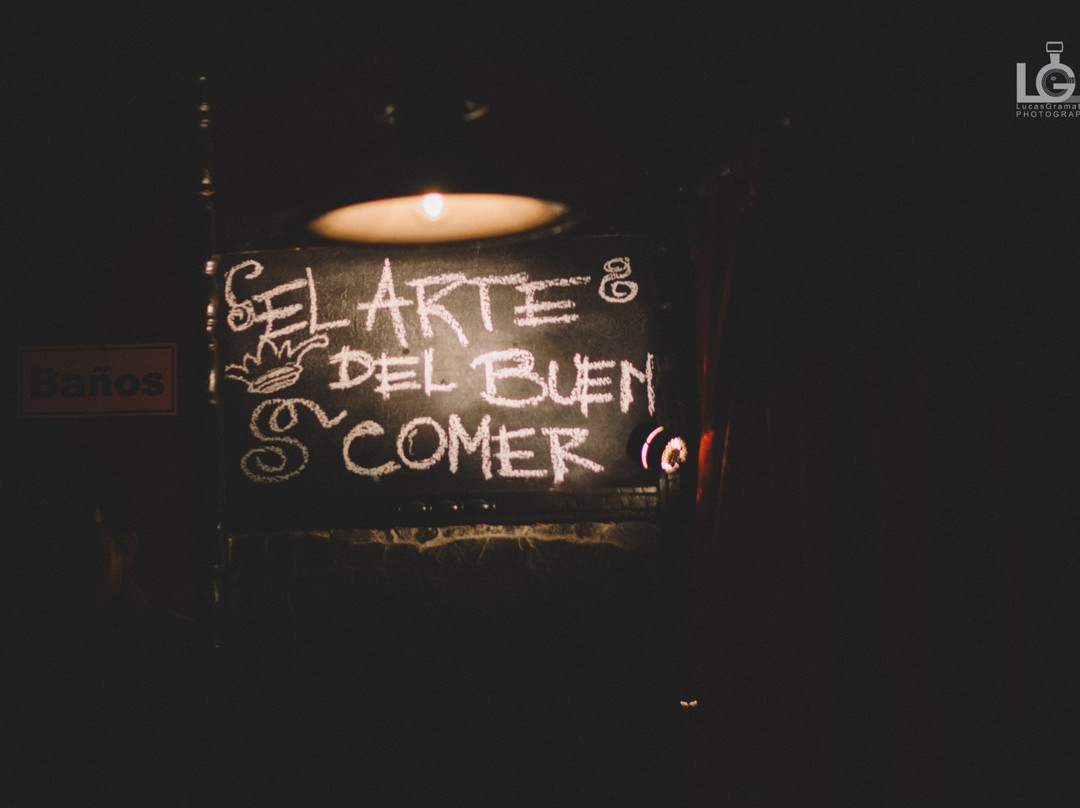 EL ARTE
DEL BUEN
COMER
Baños
LG
LucasGramat
PHOTOGRAP